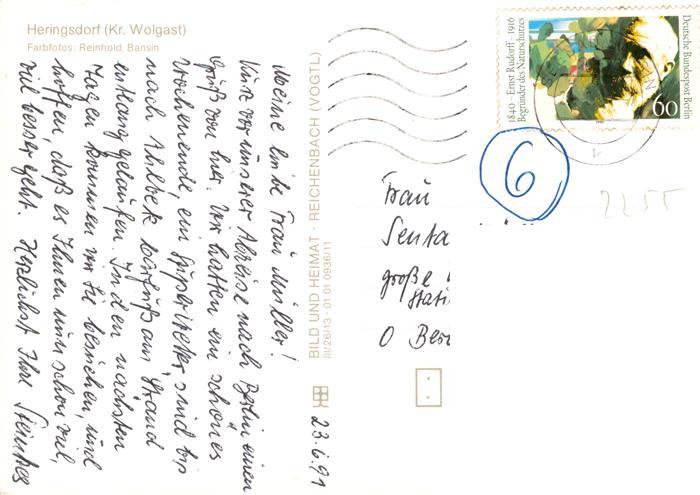 Heringsdorf (Kr. Wolgast)
Farbfotos: Reinhold, Bansin
Meine liebe Frau Müller!
Kurz vor unserer Abreise nach Berlin einen
Gruß von hier. Wir hatten ein schönes
Wochenende, ein Superwetter, sind bis
nach Ahlbeck barfuß am Strand
entlang gelaufen. In den nächsten
Tagen kommen wir Sie besuchen, und
hoffen, daß es Ihnen nun schon viel,
viel besser geht. Herzlichst Ihre
23.6.91
BILD UND HEIMAT · REICHENBACH (VOGTL)
III/26/13 · 01 01 0936/11
1840 – Ernst Rudorff – 1916
Begründer des Naturschutzes
Deutsche Bundespost Berlin
60
6
2255
Frau
Senta
große
Stati
O Ber